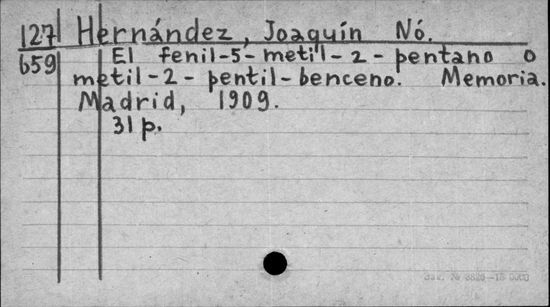 127 Hernández, Joaquín Nó.
659 El fenil-5-metil-2-pentano o
metil-2-pentil-benceno. Memoria.
Madrid, 1909.
31 p.